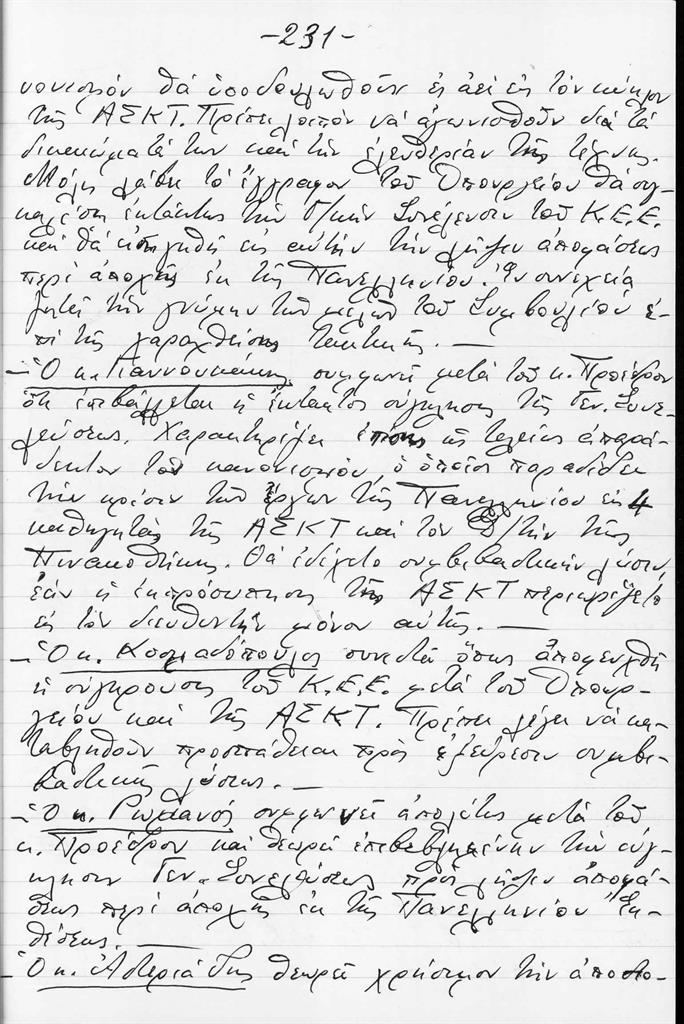 -231-
νονισμόν θά ὑποδουλωθοῦν ἐς ἀεί εἰς τόν κύκλον
τῆς ΑΣΚΤ. Πρέπει λοιπόν νά ἀγωνισθοῦν διά τά
δικαιώματά των καί τήν ἐλευθερίαν τῆς τέχνης.
Μόλις λάβῃ τό ἔγγραφον τοῦ Ὑπουργείου θά συγ-
καλέσῃ ἐκτάκτως τήν Γ/κήν Συνέλευσιν τοῦ Κ.Ε.Ε.
καί θά εἰσηγηθῇ εἰς αὐτήν τήν λῆψιν ἀποφάσεως
περί ἀποχῆς ἐκ τῆς Πανελληνίου. Ἐν συνεχείᾳ
ζητεῖ τήν γνώμην τῶν μελῶν τοῦ Συμβουλίου ἐ-
πί τῆς χαραχθείσης τακτικῆς. —
- Ὁ κ. Γιαννουκάκης συμφωνεῖ μετά τοῦ κ. Προέδρου
ὅτι ἐπιβάλλεται ἡ ἔκτακτος σύγκλησις τῆς Γεν. Συνε-
λεύσεως. Χαρακτηρίζει ἐπίσης ὡς τελείως ἀπαρά-
δεκτον τόν κανονισμόν, ὁ ὁποῖος παραδίδει
τήν κρίσιν τῶν ἔργων τῆς Πανελληνίου εἰς 4
καθηγητάς τῆς ΑΣΚΤ καί τόν Δ/τήν τῆς
Πινακοθήκης. Θά ἐδέχετο συμβιβαστικήν λύσιν
ἐάν ἡ ἐκπροσώπησις τῆς ΑΣΚΤ περιωρίζετο
εἰς τόν διευθυντήν μόνον αὐτῆς. —
- Ὁ κ. Κοσμαδόπουλος συνιστᾶ ὅπως ἀποφευχθῇ
ἡ σύγκρουσις τοῦ Κ.Ε.Ε. μετά τοῦ Ὑπουρ-
γείου καί τῆς ΑΣΚΤ. Πρέπει λέγει νά κα-
ταβληθοῦν προσπάθειαι πρός ἐξεύρεσιν συμβι-
βαστικῆς λύσεως. —
- Ὁ κ. Ρωμανός συμφωνεῖ ἀπολύτως μετά τοῦ
κ. Προέδρου καί θεωρεῖ ἐπιβεβλημένην τήν σύγ-
κλησιν Γεν. Συνελεύσεως πρός λῆψιν ἀποφά-
σεως περί ἀποχῆς ἐκ τῆς Πανελληνίου Ἐκ-
θέσεως. —
- Ὁ κ. Ἀστεριάδης θεωρεῖ χρήσιμον τήν ἀποστο-